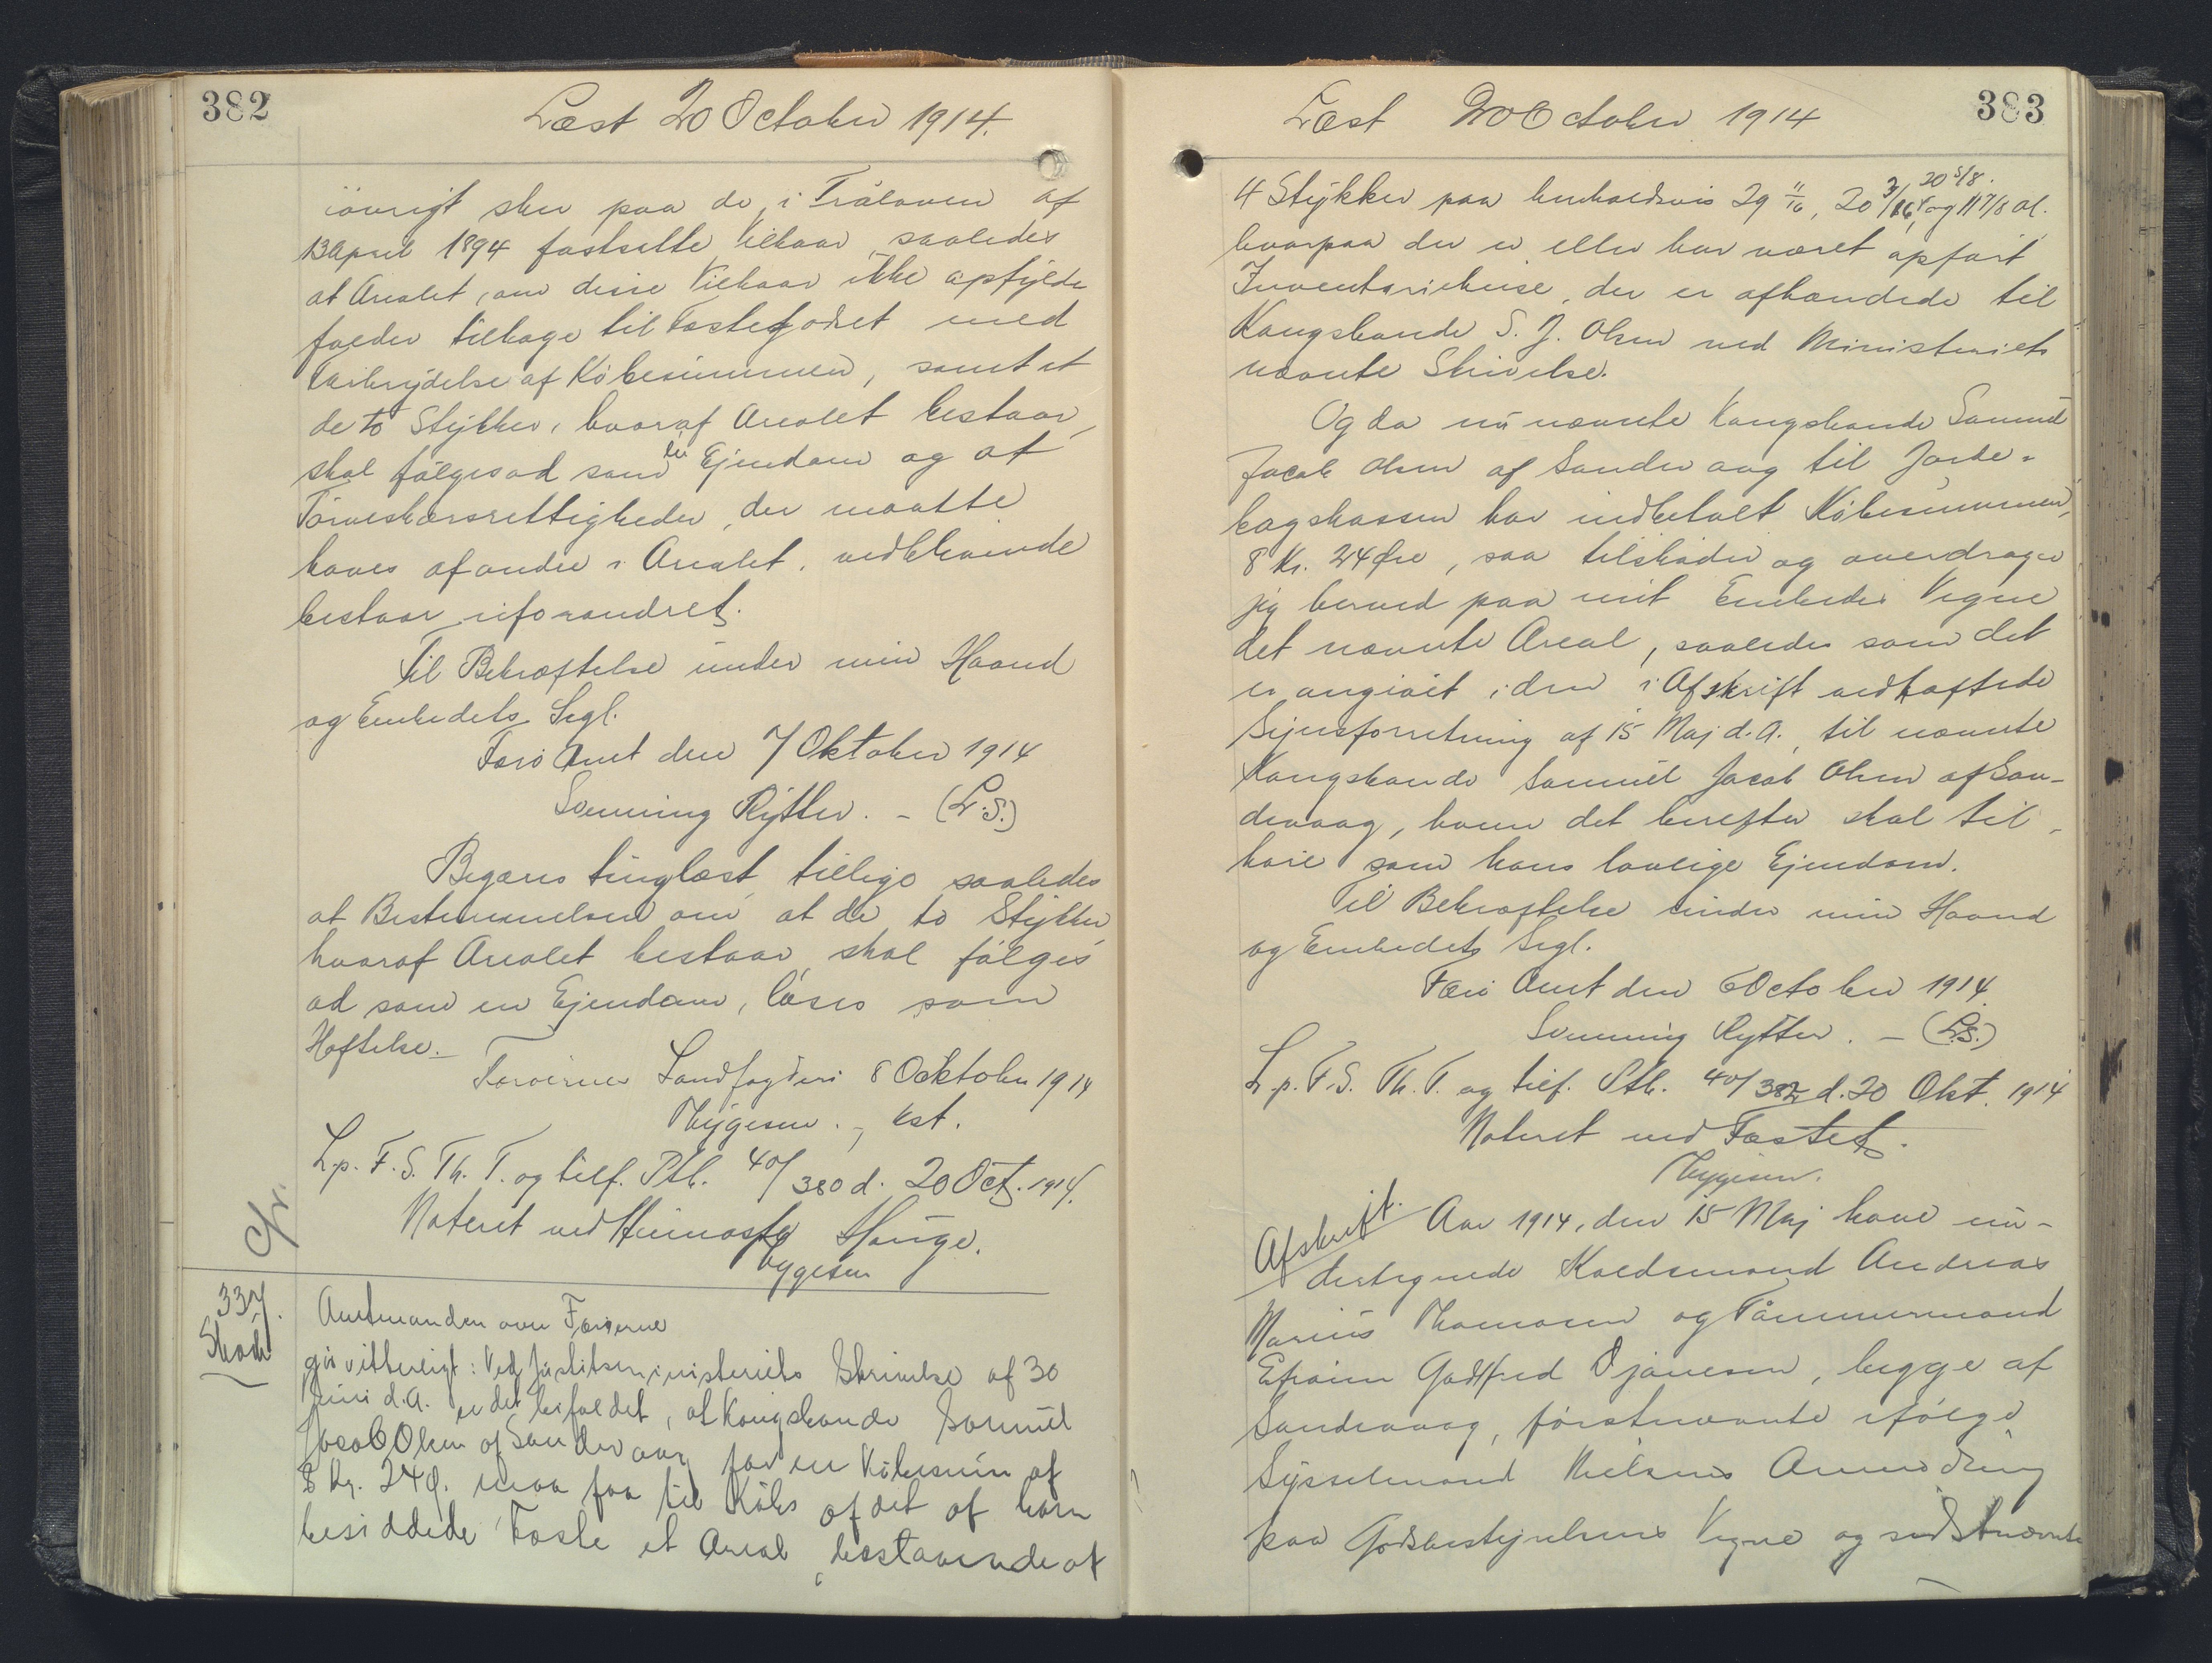 382
Læst 20 October 1914.
iövrigt sker paa de i Tråloven af
13 April 1894 fastsatte Vilkaar, saaledes
at Arealet, om disse Vilkaar ikke opfyldes
falder tilbage til Fæstegodset med
Forbrydelse af Købesummen, samt at
de to Stykker, hvoraf Arealet bestaar,
skal følges ad som en Ejendom og at
Tørveskærsrettigheder, der maatte
haves af andre i Arealet, vedblivende
bestaar uforandret.
Til Bekræftelse under min Haand
og Embedets Segl.
Færø Amt den 7 Oktober 1914
Svenning Rytter. - (L.S.)
Begæres tinglæst tillige saaledes
at Bestemmelsen om at de to Stykker
hvoraf Arealet bestaar skal følges
ad som en Ejendom, læses som
Hæftelse. -
Færøernes Landfogderi 8 Oktober 1914
Thygesen. , kst.
L. p. F. S. Th. T. og tilf. Ptb. 40/380 d. 20 Oct. 1914.
Noteret ved Hauge.
Thygesen
Cfr.
337.
Skøde
Amtmanden over Færøerne
gør vitterligt: Ved Justitsministeriets Skrivelse af 30
Juni d.A. er det bifaldet, at Kongsbonde Samuel
Jacob Olsen af Sandevaag for en Købesum af
8 Kr. 24 Ø. maa faa til Købs af det af ham
besiddede Fæste et Areal, bestaaende af
383
Læst 20 October 1914
4 Stykker paa henholdsvis 29 11/16, 20 3/16, 20 5/8. og 117/8 Al.
hvorpaa der er eller har været opført
Inventariehuse, der er afhændede til
Kongsbonde S. J. Olsen ved Ministeriets
nævnte Skrivelse.
Og da nu nævnte Kongsbonde Samuel
Jacob Olsen af Sandevaag til Jorde-
bogskassen har indbetalt Købesummen,
8 Kr. 24 Øre, saa tilskøder og overdrager
jeg herved paa mit Embedes Vegne
det nævnte Areal, saaledes som det
er angivet i den i Afskrift vedhæftede
Synsforretning af 15 Maj d.A., til nævnte
Kongsbonde Samuel Jacob Olsen af San-
devaag, hvem det herefter skal til-
høre som hans lovlige Ejendom.
Til Bekræftelse under min Haand
og Embedets Segl.
Færø Amt den 6 October 1914.
Svenning Rytter. - (L.S.)
L. p. F. S. Th. T. og tilf. Ptb. 40/382 d. 20 Okt. 1914
Noteret ved Fæstet.
Thygesen.
Afskrift. Aar 1914, den 15 Maj have un-
dertegnede Koldsmand Andreas
Marius Thomasen og Tømmermand
Efraim Godtfred Djonesen, begge af
Sandevaag, førstnævnte ifølge
Sysselmand Nielsens Anmodning
paa Godsbestyrelsens Vegne og sidstnævnte